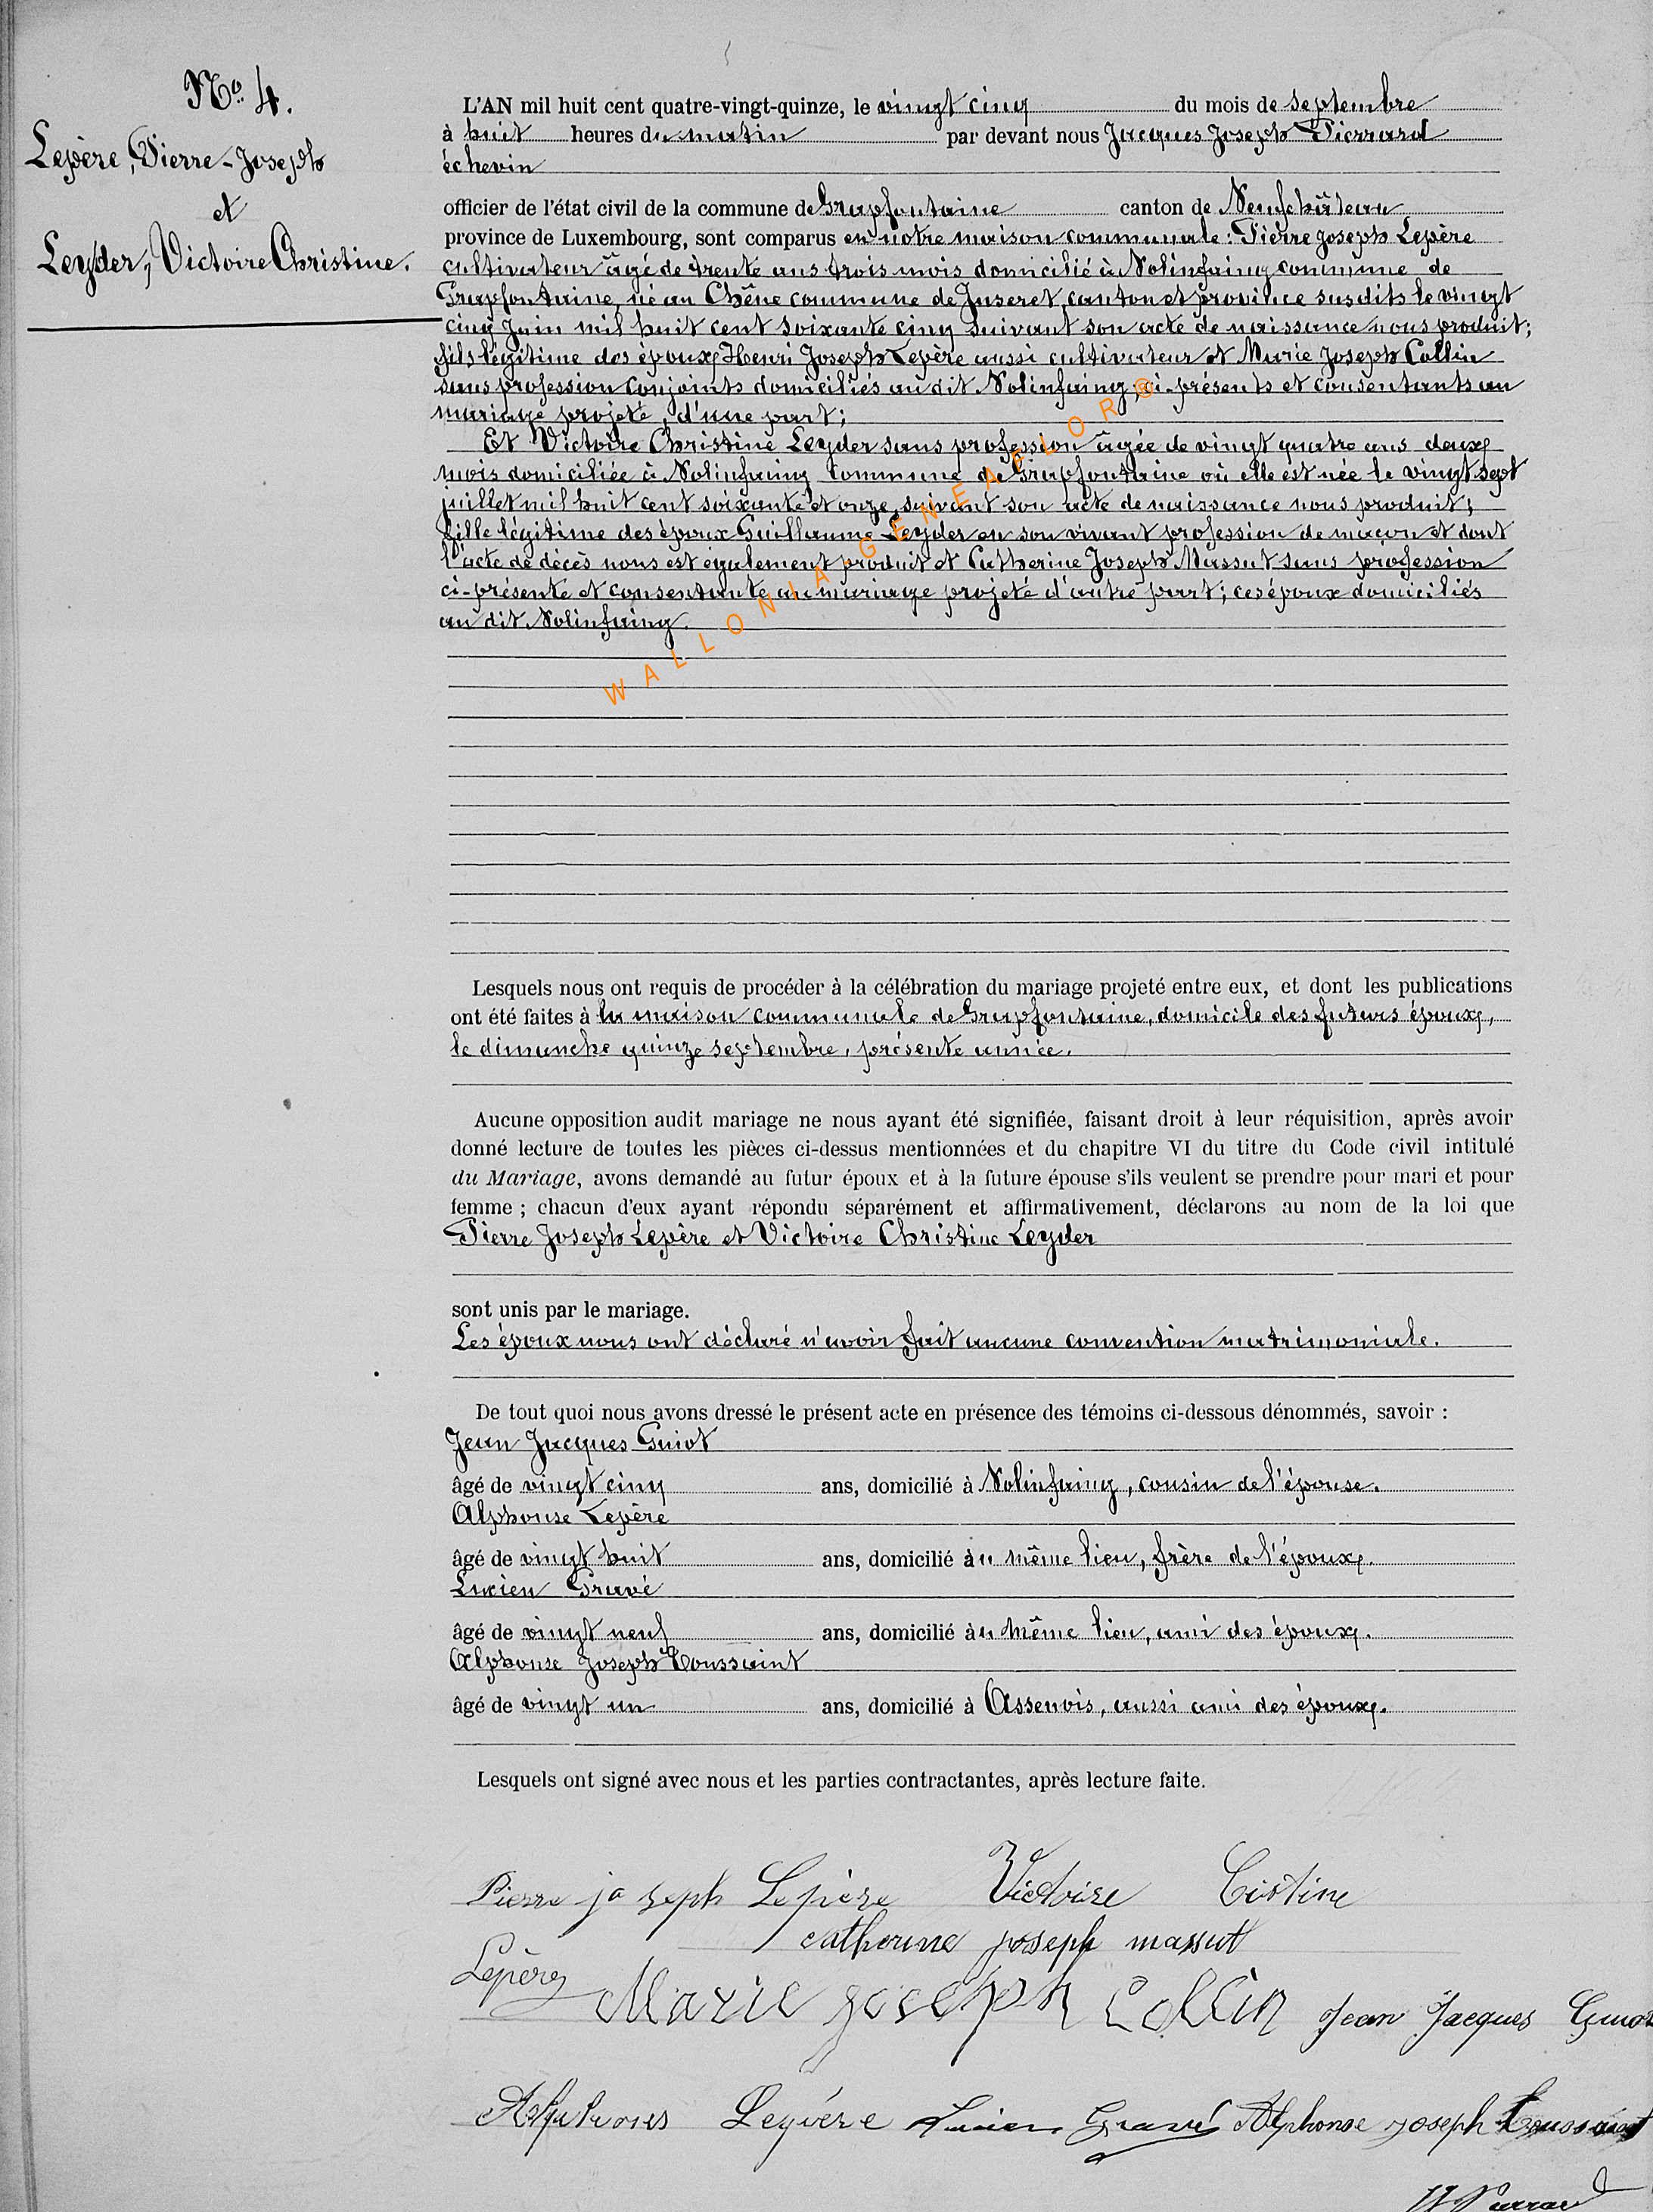 No. 4.
Lepère, Pierre-Joseph
et
Leyder, Victoire Christine.
L'AN mil huit cent quatre-vingt-quinze, le vingt cinq du mois de septembre
à huit heures du matin par devant nous Jacques Joseph Pierrard
échevin
officier de l'état civil de la commune de Grapfontaine canton de Neufchâteau
province de Luxembourg, sont comparus en notre maison communale : Pierre Joseph Lepère
cultivateur âgé de trente ans trois mois domicilié à Nolinfaing commune de
Grapfontaine, né au Chêne commune de Juseret, canton et province susdits le vingt
cinq Juin mil huit cent soixante cinq suivant son acte de naissance nous produit;
fils légitime des époux Henri Joseph Lepère aussi cultivateur et Marie Joseph Collin
sans profession conjoints domiciliés au dit Nolinfaing, ci-présents et consentants au
mariage projeté, d'une part;
Et Victoire Christine Leyder sans profession âgée de vingt quatre ans deux
mois domiciliée à Nolinfaing commune de Grapfontaine où elle est née le vingt sept
juillet mil huit cent soixante et onze, suivant son acte de naissance nous produit;
fille légitime des époux Guillaume Leyder en son vivant profession de maçon et dont
l'acte de décès nous est également produit et Catherine Joseph Massut sans profession
ci-présente et consentante au mariage projeté d'autre part; ces époux domiciliés
au dit Nolinfaing.
WALLONIA-GENEAFLOR©
Lesquels nous ont requis de procéder à la célébration du mariage projeté entre eux, et dont les publications
ont été faites à la maison communale de Grapfontaine, domicile des futurs époux,
le dimanche quinze septembre, présente année.
Aucune opposition audit mariage ne nous ayant été signifiée, faisant droit à leur réquisition, après avoir
donné lecture de toutes les pièces ci-dessus mentionnées et du chapitre VI du titre du Code civil intitulé
du Mariage, avons demandé au futur époux et à la future épouse s'ils veulent se prendre pour mari et pour
femme ; chacun d'eux ayant répondu séparément et affirmativement, déclarons au nom de la loi que
Pierre Joseph Lepère et Victoire Christine Leyder
sont unis par le mariage.
Les époux nous ont déclaré n'avoir fait aucune convention matrimoniale.
De tout quoi nous avons dressé le présent acte en présence des témoins ci-dessous dénommés, savoir :
Jean Jacques Guiot
âgé de vingt cinq ans, domicilié à Nolinfaing, cousin de l'épouse.
Alphonse Lepère
âgé de vingt huit ans, domicilié au même lieu, frère de l'époux.
Lucien Gravé
âgé de vingt neuf ans, domicilié au même lieu, ami des époux.
Alphonse Joseph Toussaint
âgé de vingt un ans, domicilié à Assenois, aussi ami des époux.
Lesquels ont signé avec nous et les parties contractantes, après lecture faite.
Pierre joseph Lepère Victoire Cistine
catherine joseph massut
Lepère Marie joseph Collin Jean Jacques Guiot
Alphonse Lepère Lucien Gravé Alphonse joseph Toussaint